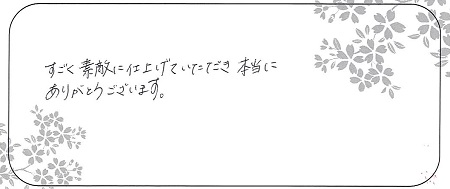 すごく素敵に仕上げていただき 本当に
ありがとうございます。